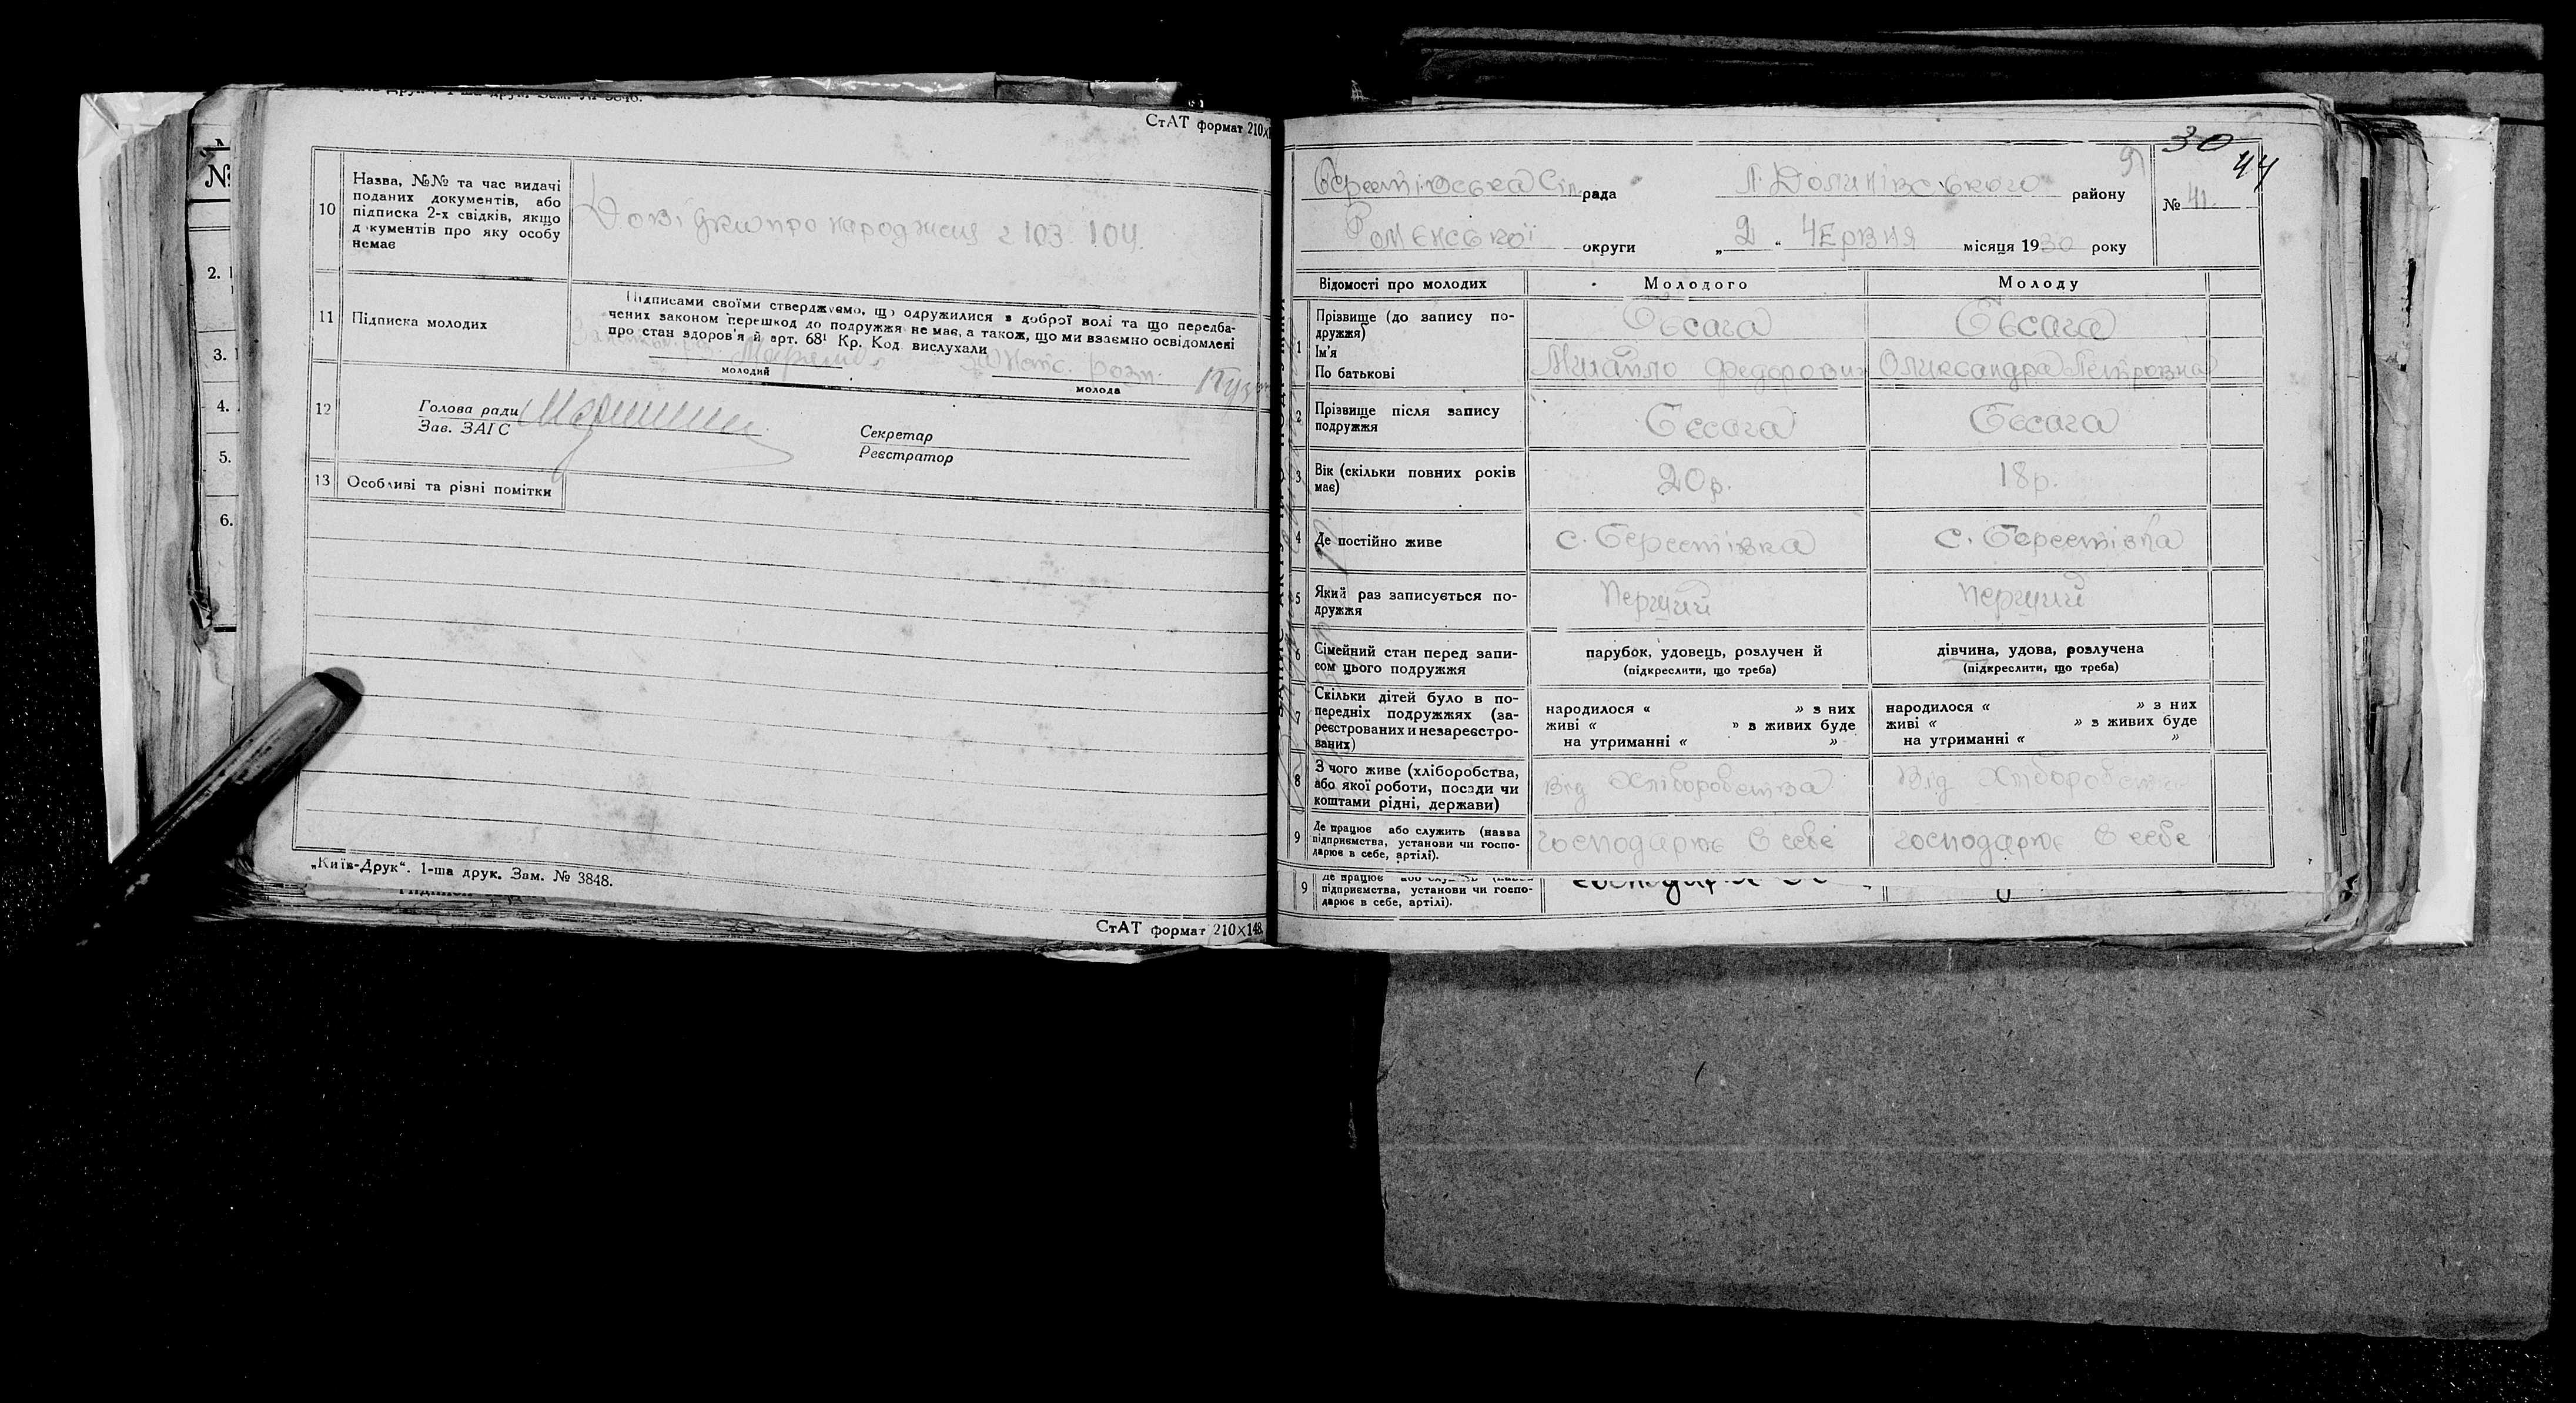 СтАТ формат 210×1
10 Назва, №№ та час видачі поданих документів, або підписка 2-х свідків, якщо документів про яку особу немає
Довідки про народження 2 103 104.
11 Підписка молодих
Підписами своїми стверджуємо, що одружилися з доброї волі та що передба-
чених законом перешкод до подружжя не має, а також, що ми взаємно освідомлені
про стан здоров'я й арт. 68¹ Кр. Код. вислухали
молодий
молода
12 Голова ради
Зав. ЗАГС
Секретар
Реєстратор
13 Особливі та різні помітки
„Київ-Друк“. 1-ша друк. Зам. № 3848.
СтАТ формат 210×148
№
2.
3.
4.
5.
6.
30
44
Берестівська Сіл рада Л. Долинівського району
№ 41.
Роменської округи „2“ Червня місяця 1930 року
Відомості про молодих Молодого Молоду
1 Прізвище (до запису по-
дружжя) Бесага Бесага
Ім'я
По батькові Михайло Федорович Олександра Петровна
2 Прізвище після запису
подружжя Бесага Бесага
3 Вік (скільки повних років
має) 20 р. 18 р.
4 Де постійно живе с. Берестівка с. Берестівка
5 Який раз записується по-
дружжя Перший Перший
6 Сімейний стан перед запи-
сом цього подружжя парубок, удовець, розлучен й (підкреслити, що треба) дівчина, удова, розлучена (підкреслити, що треба)
7 Скільки дітей було в по-
передніх подружжях (за-
реєстрованих и незареєстро-
ваних)
народилося « » з них народилося « » з них
живі « » в живих буде живі « » в живих буде
на утриманні « » на утриманні « »
8 З чого живе (хліборобства,
або якої роботи, посади чи
коштами рідні, держави) Від Хліборобства Від Хліборобства
9 Де працює або служить (назва
підприємства, установи чи госпо-
дарює в себе, артілі). господарює в себе господарює в себе
9
підприємства, установи чи госпо-
дарює в себе, артілі).